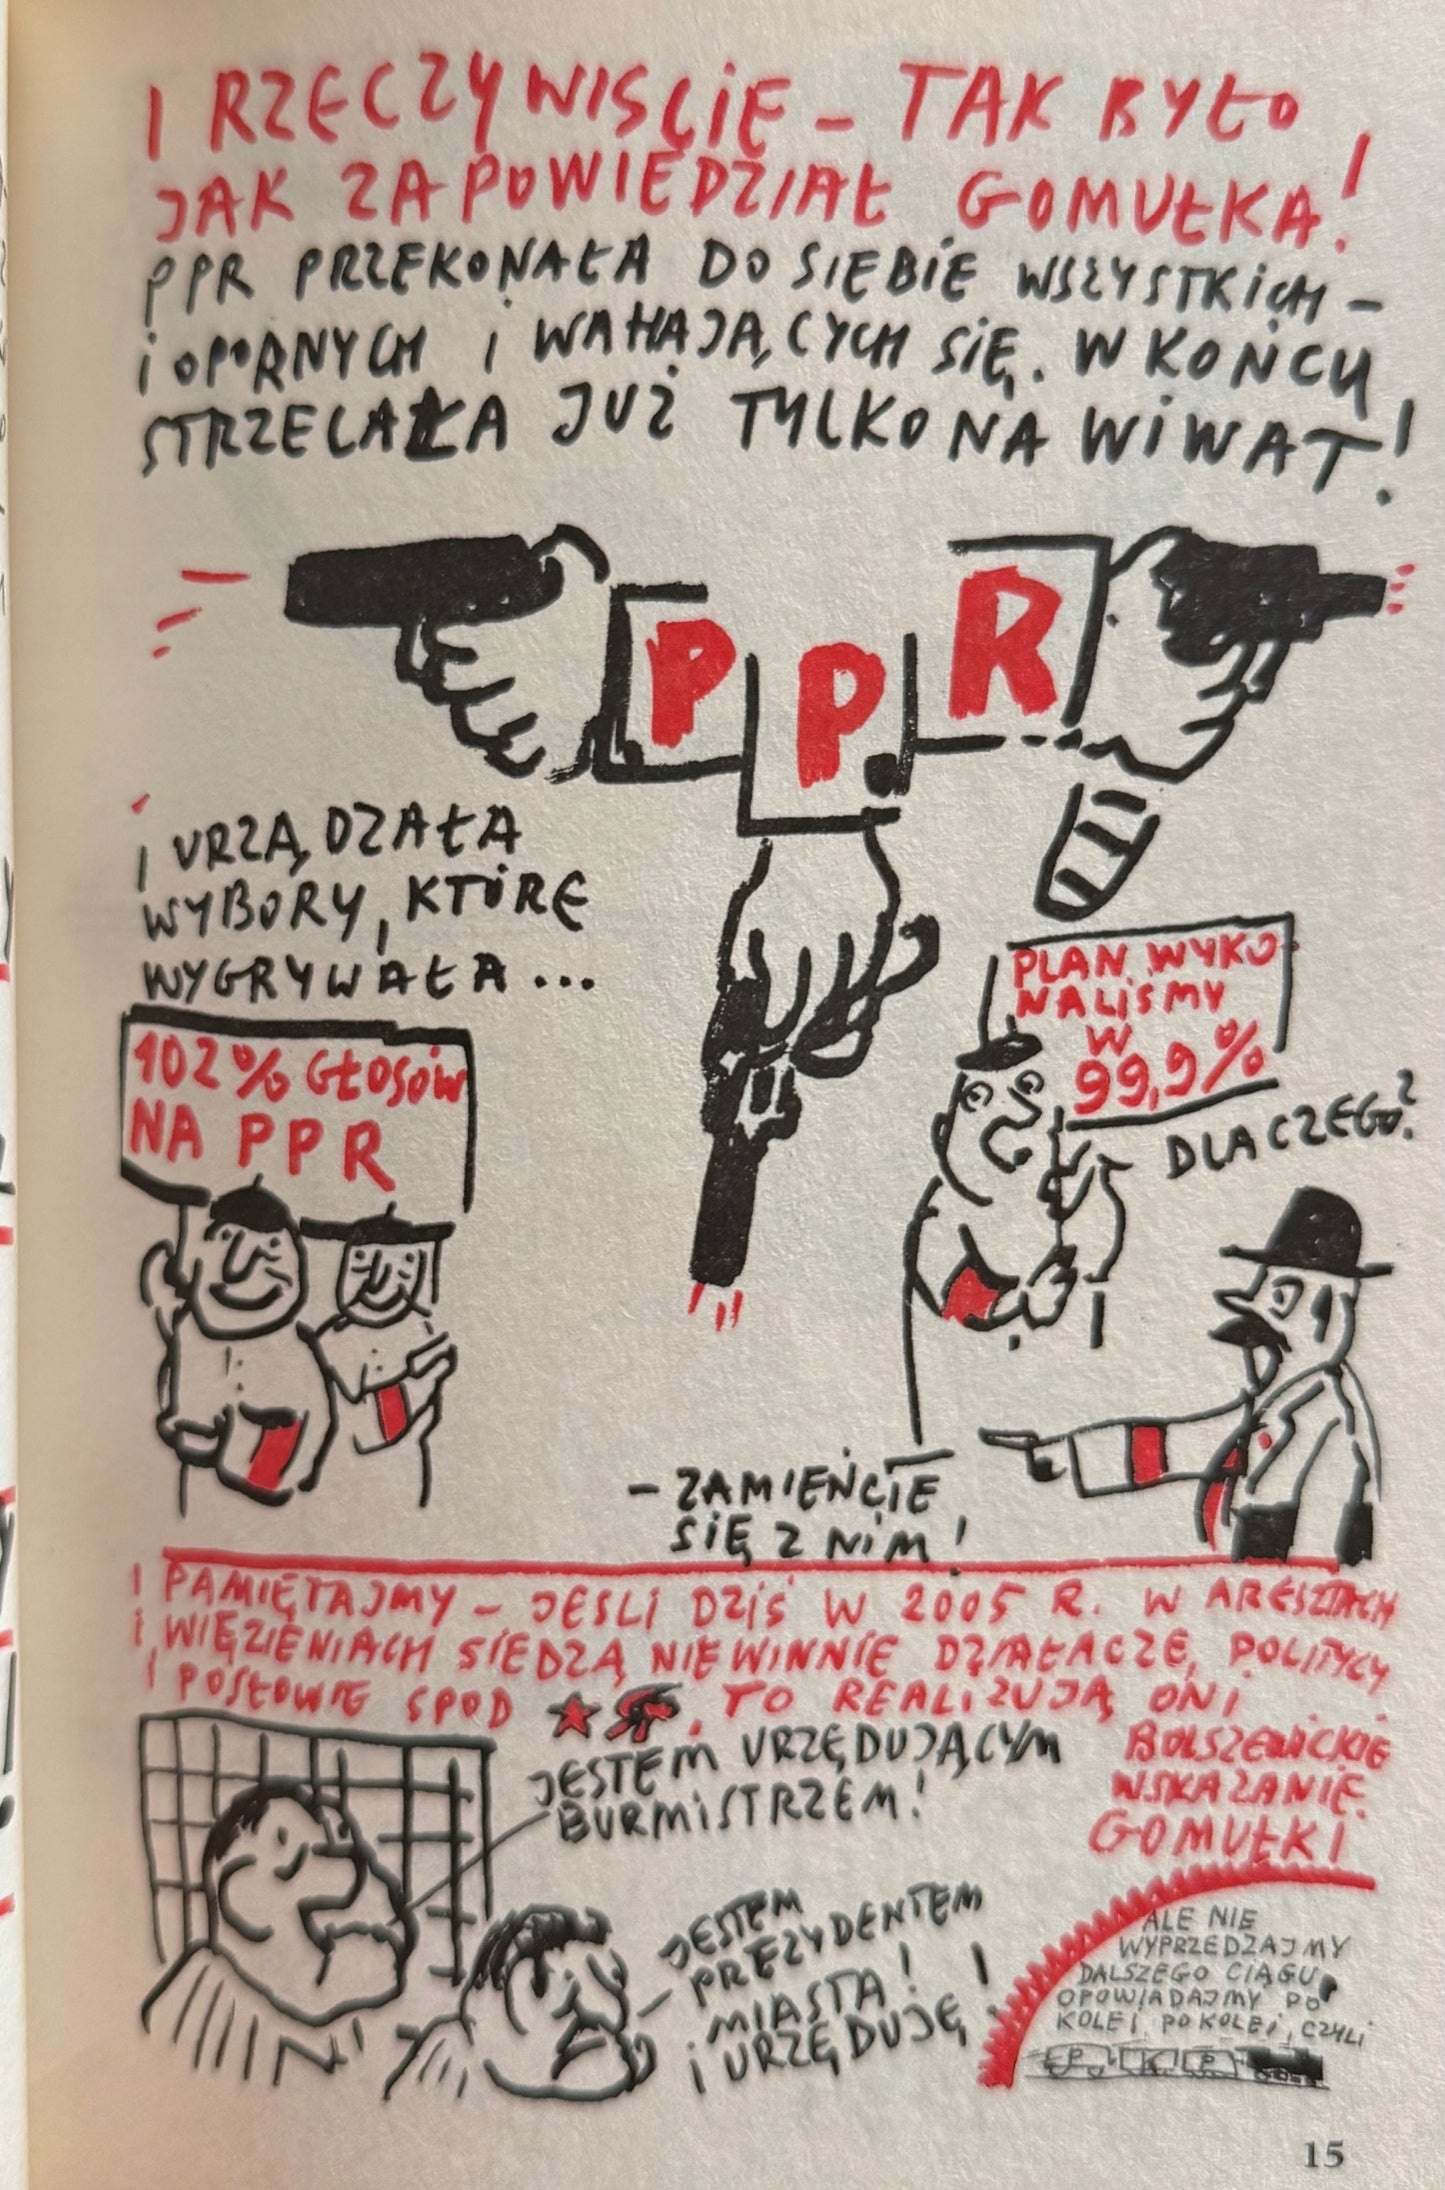 I RZECZYWIŚCIE – TAK BYŁO
JAK ZAPOWIEDZIAŁ GOMUŁKA!
PPR PRZEKONAŁA DO SIEBIE WSZYSTKICH –
I OPORNYCH I WAHAJĄCYCH SIĘ. W KOŃCU
STRZELAŁA JUŻ TYLKO NA WIWAT!
P.P.R
I URZĄDZAŁA
WYBORY, KTÓRE
WYGRYWAŁA...
102% GŁOSÓW
NA PPR
PLAN WYKO
NALIŚMY
W
99,9%
DLACZEGO?
– ZAMIEŃCIE
SIĘ Z NIM!
I PAMIĘTAJMY – JEŚLI DZIŚ W 2005 R. W ARESZTACH
I WIĘZIENIACH SIEDZĄ NIEWINNIE DZIAŁACZE, POLITYCY
I POSŁOWIE SPOD ★ , TO REALIZUJĄ ONI
BOLSZEWICKIE
WSKAZANIE
GOMUŁKI
JESTEM URZĘDUJĄCYM
BURMISTRZEM!
JESTEM
PREZYDENTEM
MIASTA!
I URZĘDUJĘ!
ALE NIE
WYPRZEDZAJMY
DALSZEGO CIĄGU,
OPOWIADAJMY PO
KOLEI, PO KOLEI, CZYLI
P K P
15